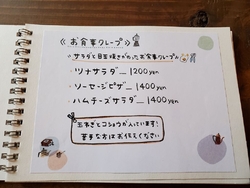 《お食事クレープ》
サラダと目玉焼きがのったお食事クレープ
・ツナサラダ__ 1200yen
・ソーセージピザ__ 1400yen
・ハムチーズサラダ__ 1400yen
玉ネギとコショウが入っています!
苦手な方はお伝えください